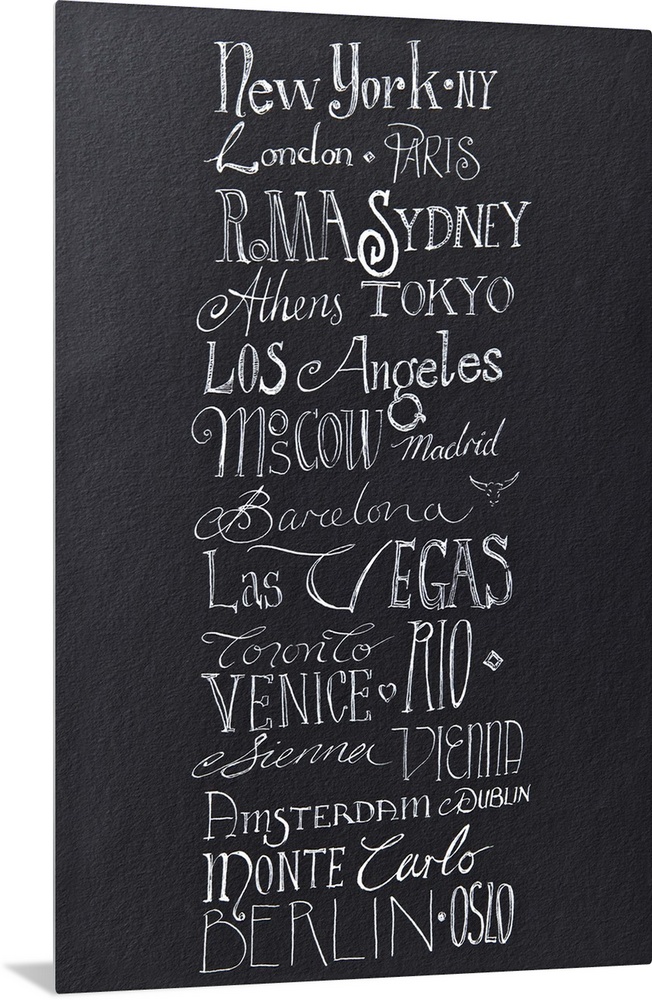 New York • NY
London • PARIS
RoMA SYDNEY
Athens TOKYO
LOS Angeles
MosCOW Madrid
Barcelona
Las VEGAS
Toronto RIO
VENICE ♡
Sienna VIENNA
AmSTERDAM DUBLIN
MONTE Carlo
BERLIN • OSLO